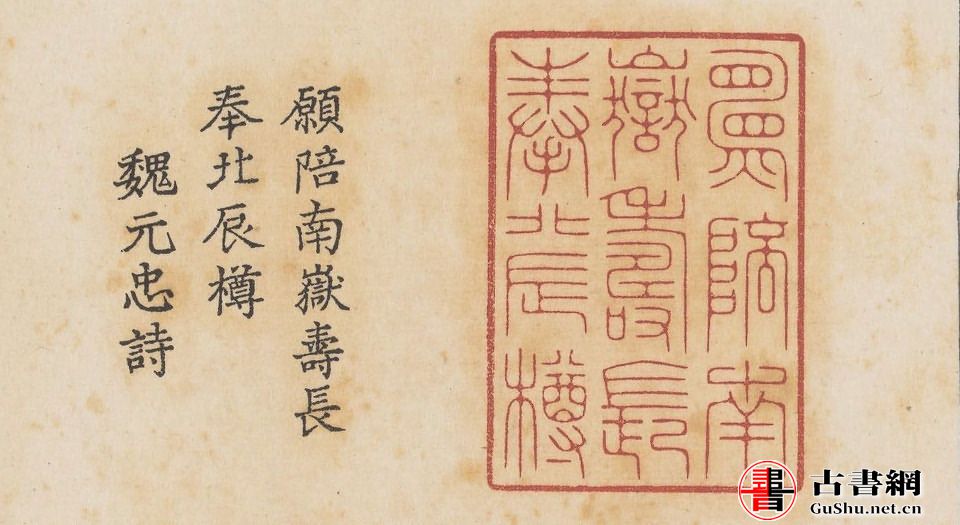 願陪南
嶽壽長
奉北辰樽
願陪南嶽壽長
奉北辰樽
魏元忠詩
書
古書網
GuShu.net.cn